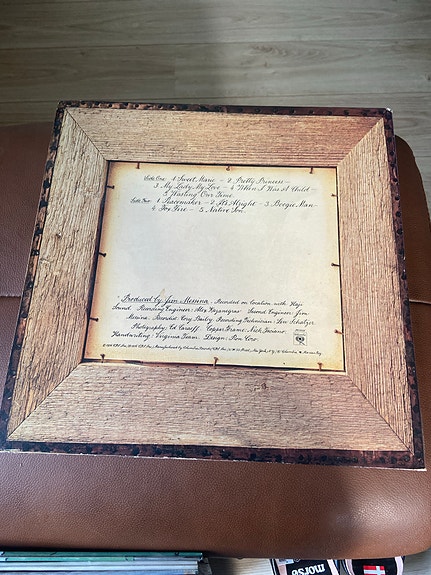 Side One 1. Sweet Marie – 2. Pretty Princess –
3. My Lady, My Love – 4. When I Was A Child –
5. Wasting Our Time
Side Two 1. Peacemaker – 2. It's Alright – 3. Boogie Man
4. Fox Fire – 5. Native Son.
Produced by Jim Messina. Recorded on Location with Haji
Sound. Recording Engineer: Alex Kazanegras. Second Engineer: Jim
Messina. Recordist: Corey Bailey. Recording Technician: Lew Schatzer
Photography: Ed Caraeff. Copper Frame: Nick Fasciano.
Handwriting: Virginia Team. Design: Ron Coro.
Manufactured by Columbia Records
morsø